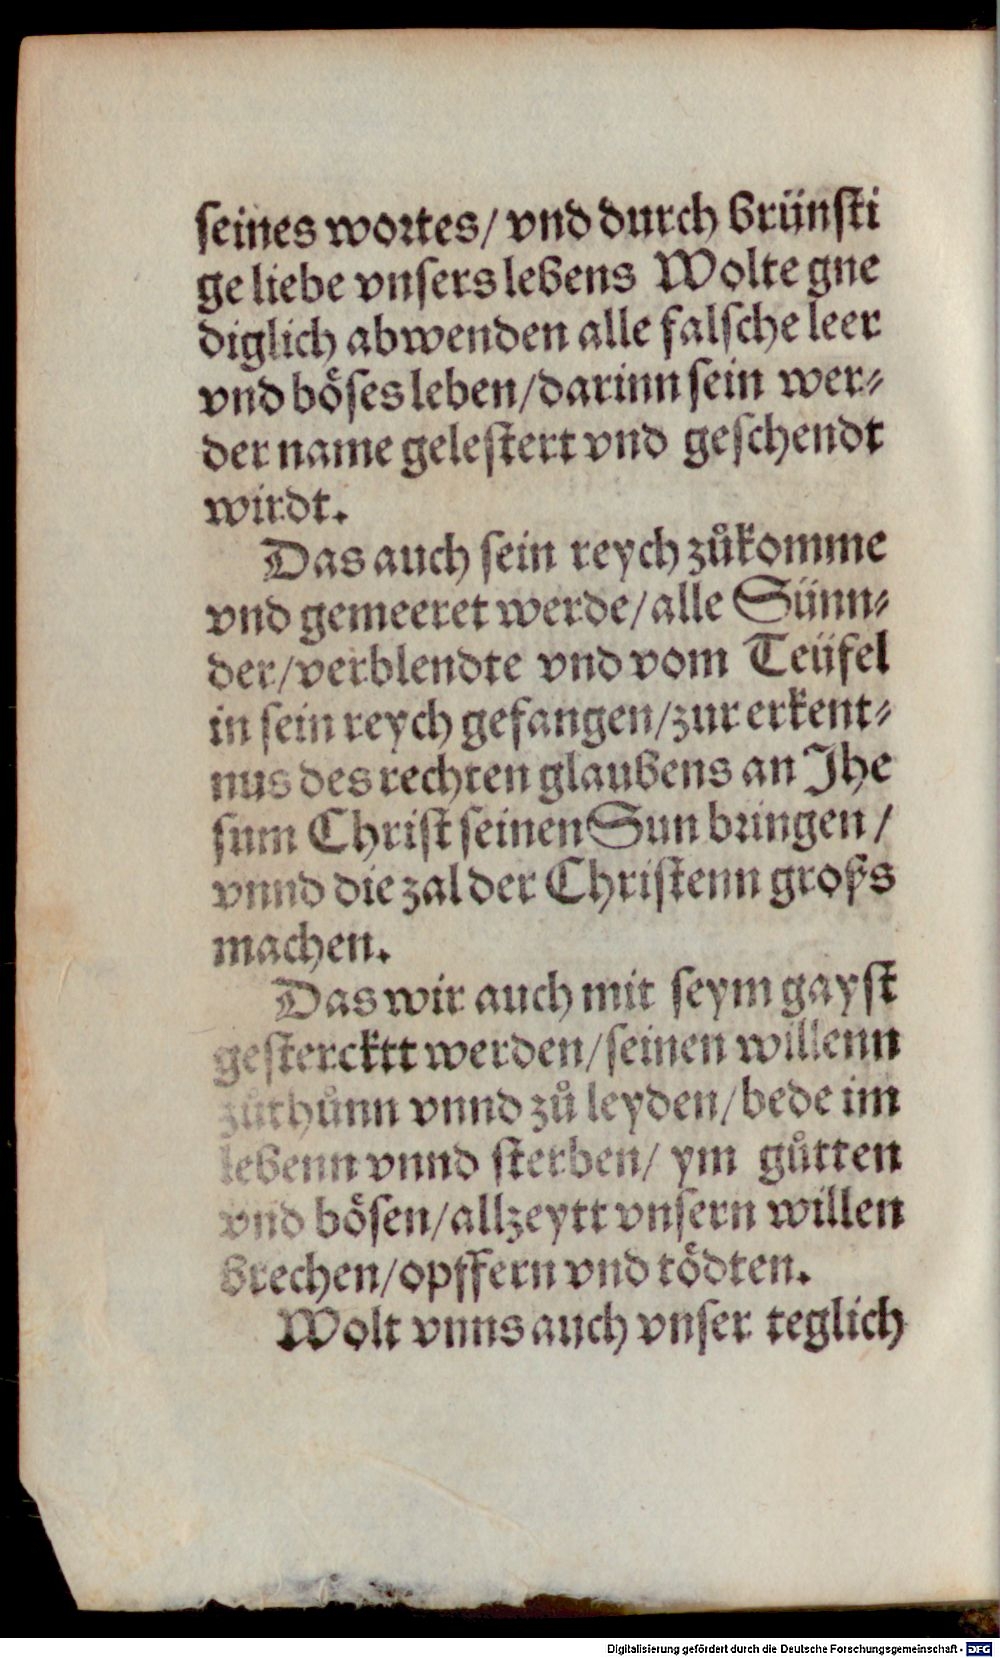 seines wortes/ vnd durch brünsti
ge liebe vnsers lebens Wolte gne
diglich abwenden alle falsche leer
vnd böses leben/darinn sein wer⸗
der name gelestert vnd geschendt
wirdt.
Das auch sein reych zůkomme
vnd gemeeret werde/alle Sünn⸗
der/verblendte vnd vom Teüfel
in sein reych gefangen/zur erkent⸗
nus des rechten glaubens an Jhe
sum Christ seinen Sun bringen/
vnnd die zal der Christenn groß
machen.
Das wir auch mit seym gayst
gestercktt werden/seinen willenn
zůthůnn vnnd zů leyden/bede im
lebenn vnnd sterben/ ym gůtten
vnd bösen/allzeytt vnsern willen
brechen/opffern vnd tödten.
Wolt vnns auch vnser teglich
Digitalisierung gefördert durch die Deutsche Forschungsgemeinschaft - DFG